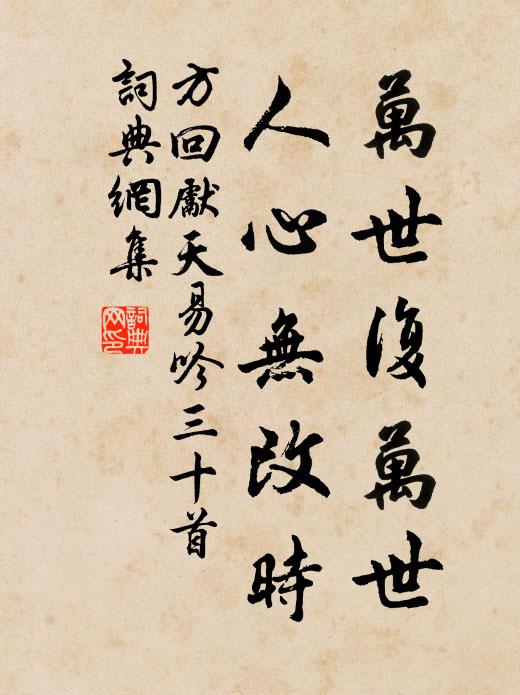 萬世復萬世
人心無改時
方回獻天易吟三十首
詞典網集
詞典網印